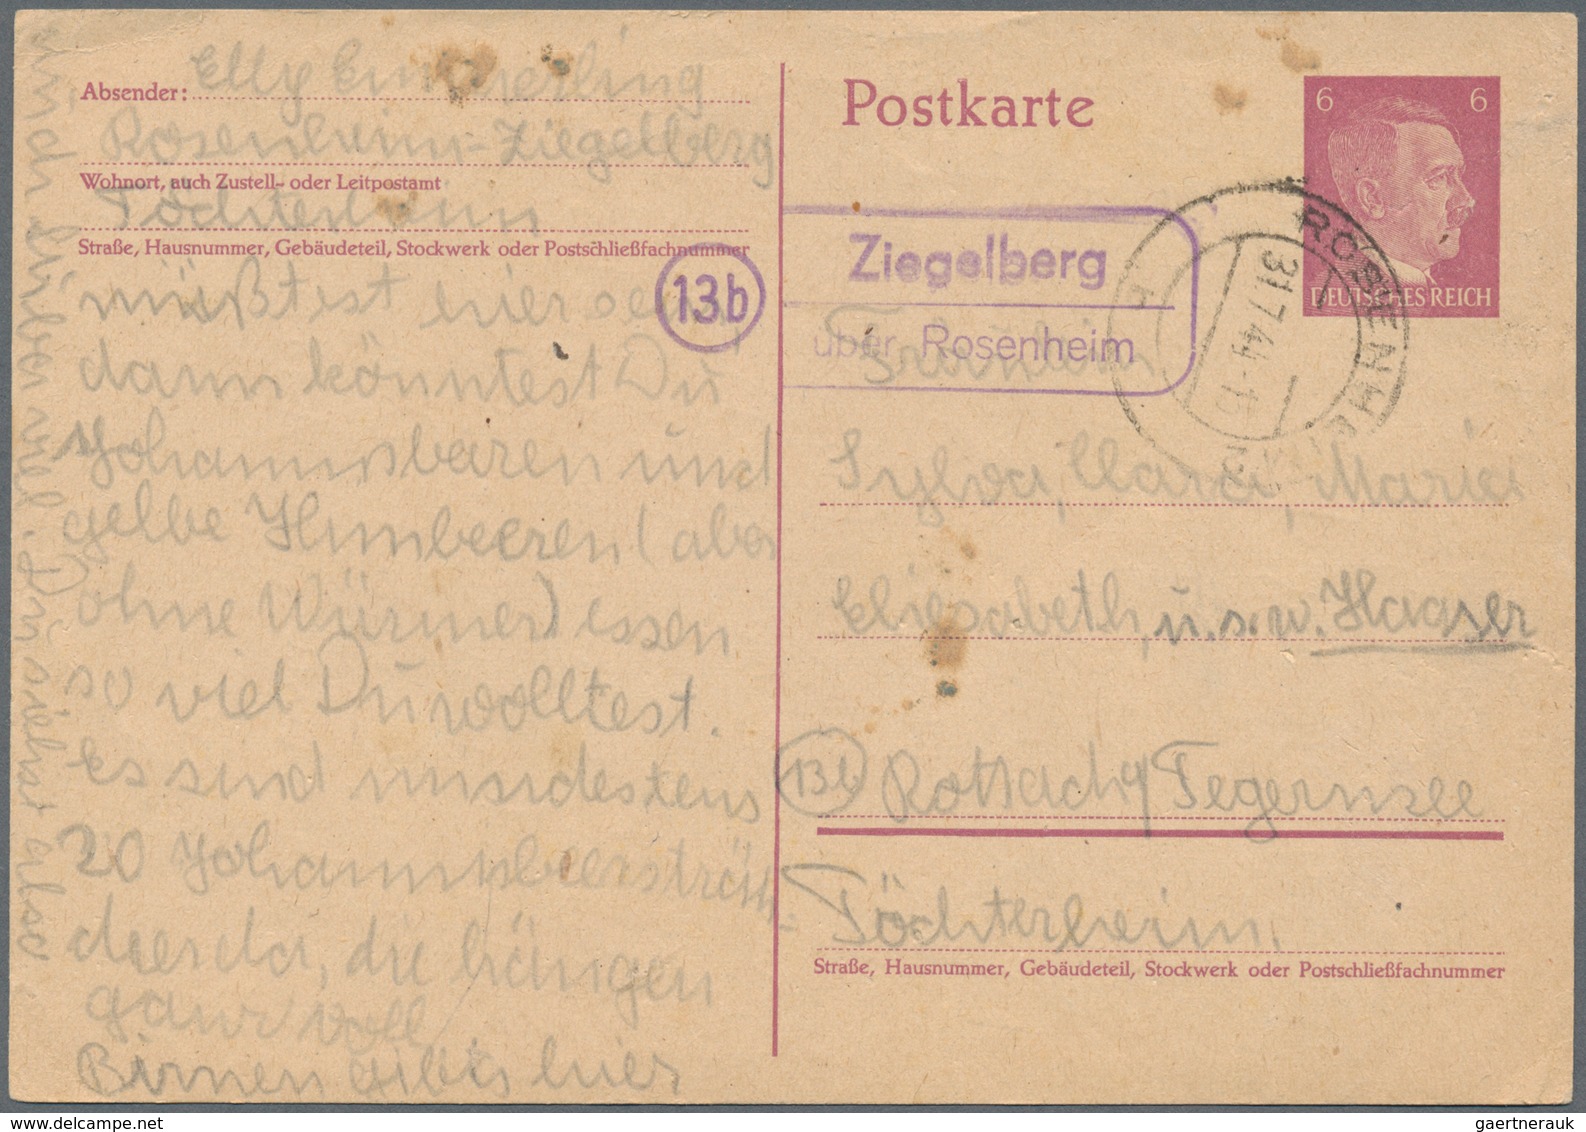 Absender: Elly Emmerling
Rosenheim-Ziegelberg
Wohnort, auch Zustell- oder Leitpostamt
Töchterheim
Straße, Hausnummer, Gebäudeteil, Stockwerk oder Postschließfachnummer
müßtest hier sein
dann könntest Du
Johannisbeeren und
gelbe Himbeeren (aber
ohne Würmer) essen
so viel Du wolltest.
Es sind mindestens
20 Johannisbeersträu-
cher da, die hängen
ganz voll
Birnen gibts hier
auch lieber viel. Du siehst also
13b
Postkarte
6 6
DEUTSCHES REICH
Ziegelberg
über Rosenheim
ROSENHEIM
31.7.44
Fräulein
Sylva, Clara, Maria
Eliesabeth, u.s.w. Haaser
13b Rottach / Tegernsee
Töchterheim.
Straße, Hausnummer, Gebäudeteil, Stockwerk oder Postschließfachnummer
www.delcampe.net
gaertnerauk